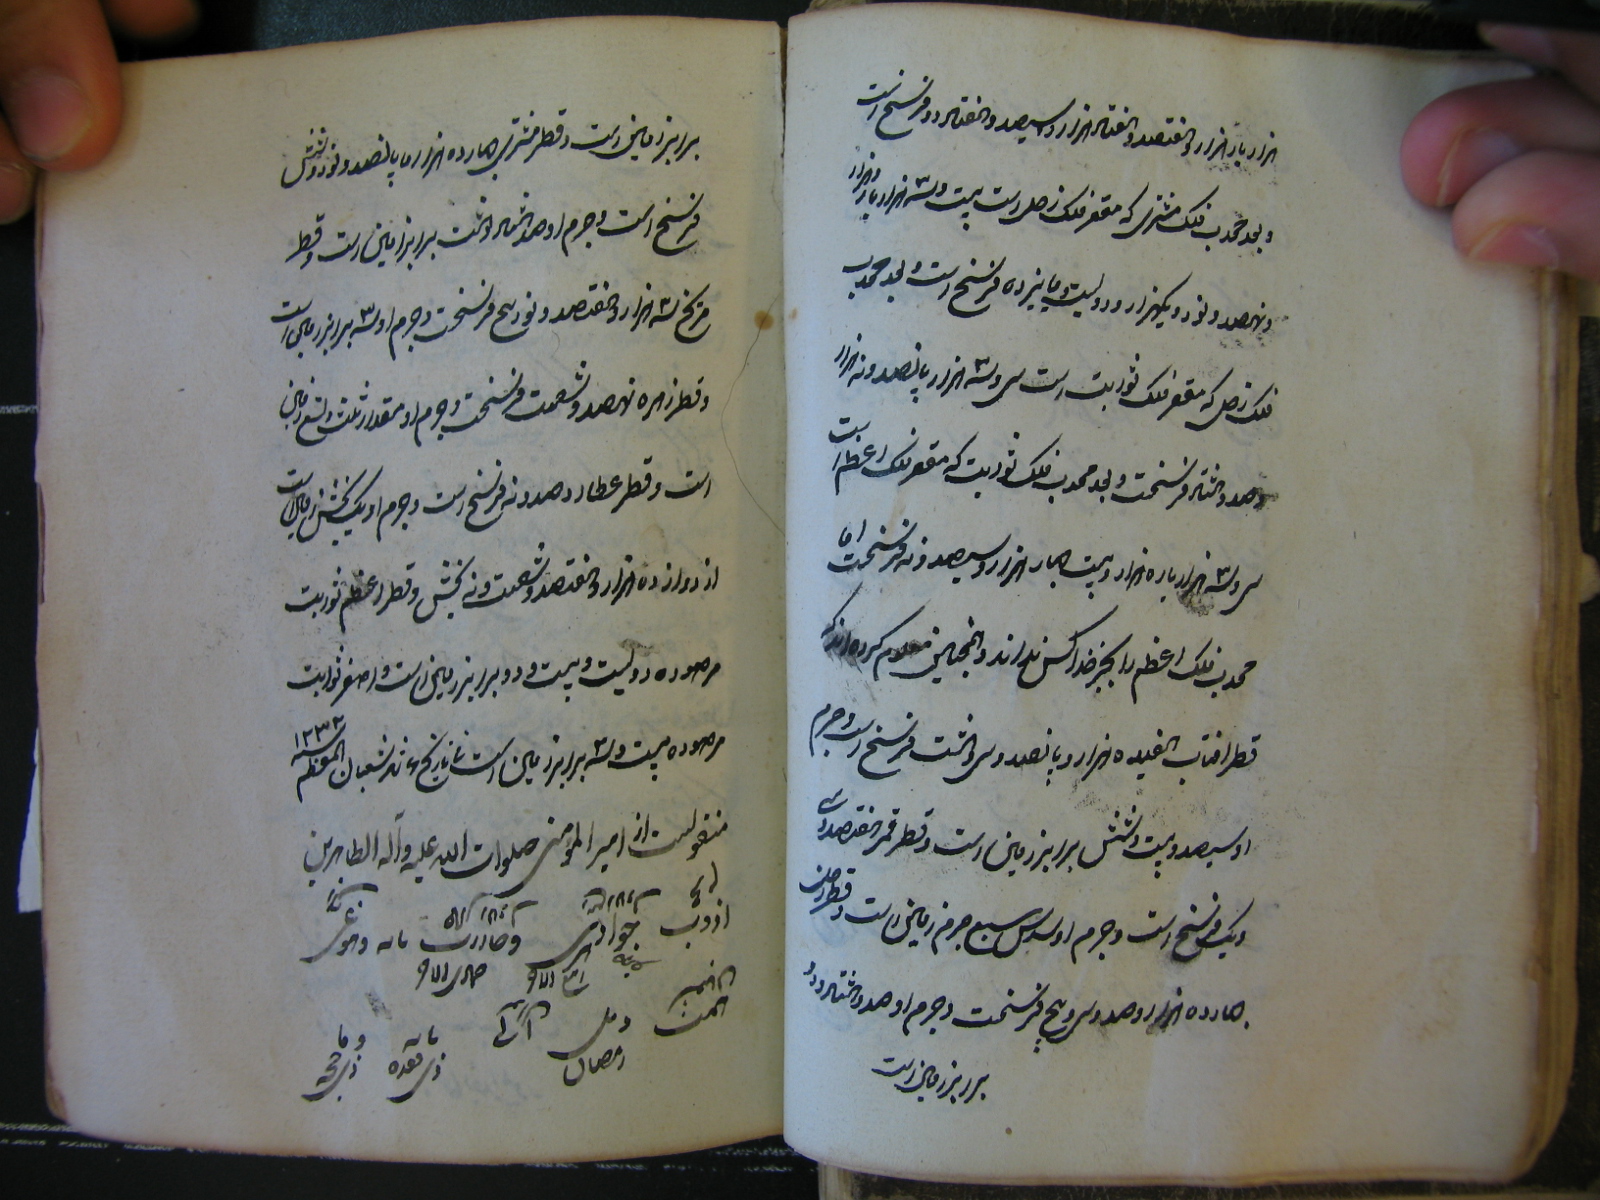 هزار بار هزار و هفتصد و هفتاد هزار و سیصد و هفتاد و دو فرسنخ است
و بعد محدب فلک مشتری که مقعر فلک زحل است بیست و سه هزار بار هزار
و نهصد و نود و یکهزار و دویست و پانزده فرسنخ است و بعد محدب
فلک زحل که مقعر فلک ثوابت است سی و سه هزار هزار و پانصد و نه هزار
و صد و هشتاد فرسنخست و بعد محدب فلک ثوابت که مقعر فلک اعظم است
سی و سه هزار بار هزار و بیست چهار هزار و سیصد و نه فرسنخست اما
محدب فلک اعظم را بجز خدا کس نداند و همچنین معلوم کرده‌اند که
قطر افتاب هفیده هزار و پانصد و سی و هشت فرسنخ است و جرم
او سیصد و بیست و شش برابر زمین است و قطر قمر هفتصد و سی
و یک فرسنخ است و جرم او سدس سبع جرم زمین است و قطر زحل
چهارده هزار و صد و سی و پنج فرسنخست و جرم او صد و هشتاد و دو
برابر زمین است
برابر زمین است و قطر مشتری چهارده هزار و پانصد و نود و شش
فرسنخ است و جرم او صد و هشتاد و هشت برابر زمین است و قطر
مریخ سه هزار و هفتصد و نود پنج فرسنخست و جرم او سه برابر زمین است
و قطر زهره نهصد و شصت فرسنخست و جرم او مقدار ثلث و تسع زمین
است و قطر عطارد صد و نه فرسنخ است و جرم او یک بخش زمین است
از دوازده هزار و هفتصد و شصت و نه بخش و قطر اعظم ثوابت
مرصوده دویست و بیست و دو برابر زمین است و اصغر ثوابت
مرصوده بیست و سه برابر زمین است تاریخ شعبان المعظم سنه ۱۲۳۲
منقولست از امیر المؤمنین صلوات الله علیه و آله الطاهرین
رمضان
ذی قعده
ذی حجه